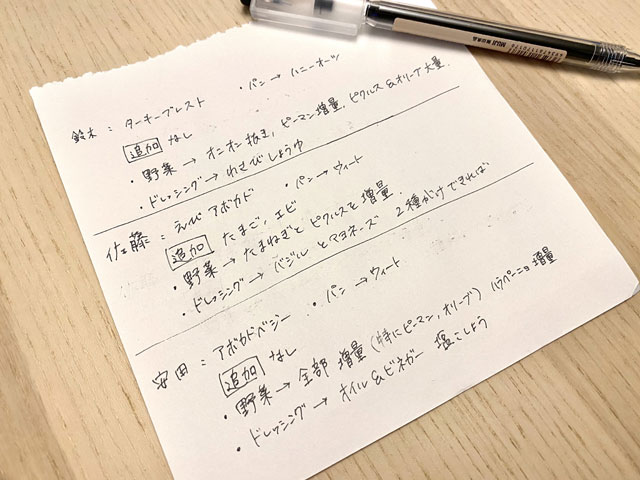 鈴木：ターキーブレスト ・パン→ハニーオーツ
追加 なし
・野菜→オニオン抜き，ピーマン増量，ピクルス&オリーブ大量．
・ドレッシング→わさびしょうゆ
佐藤：えびアボカド ・パン→ウィート
追加 たまご，エビ
・野菜→たまねぎとピクルスを増量．
・ドレッシング→バジルとマヨネーズ 2種がけできれば
安田：アボカドベジー ・パン→ウィート
追加 なし
・野菜→全部増量(特にピーマン，オリーブ) ハラペーニョ増量
・ドレッシング→オイル&ビネガー 塩こしょう
MUJI 無印良品